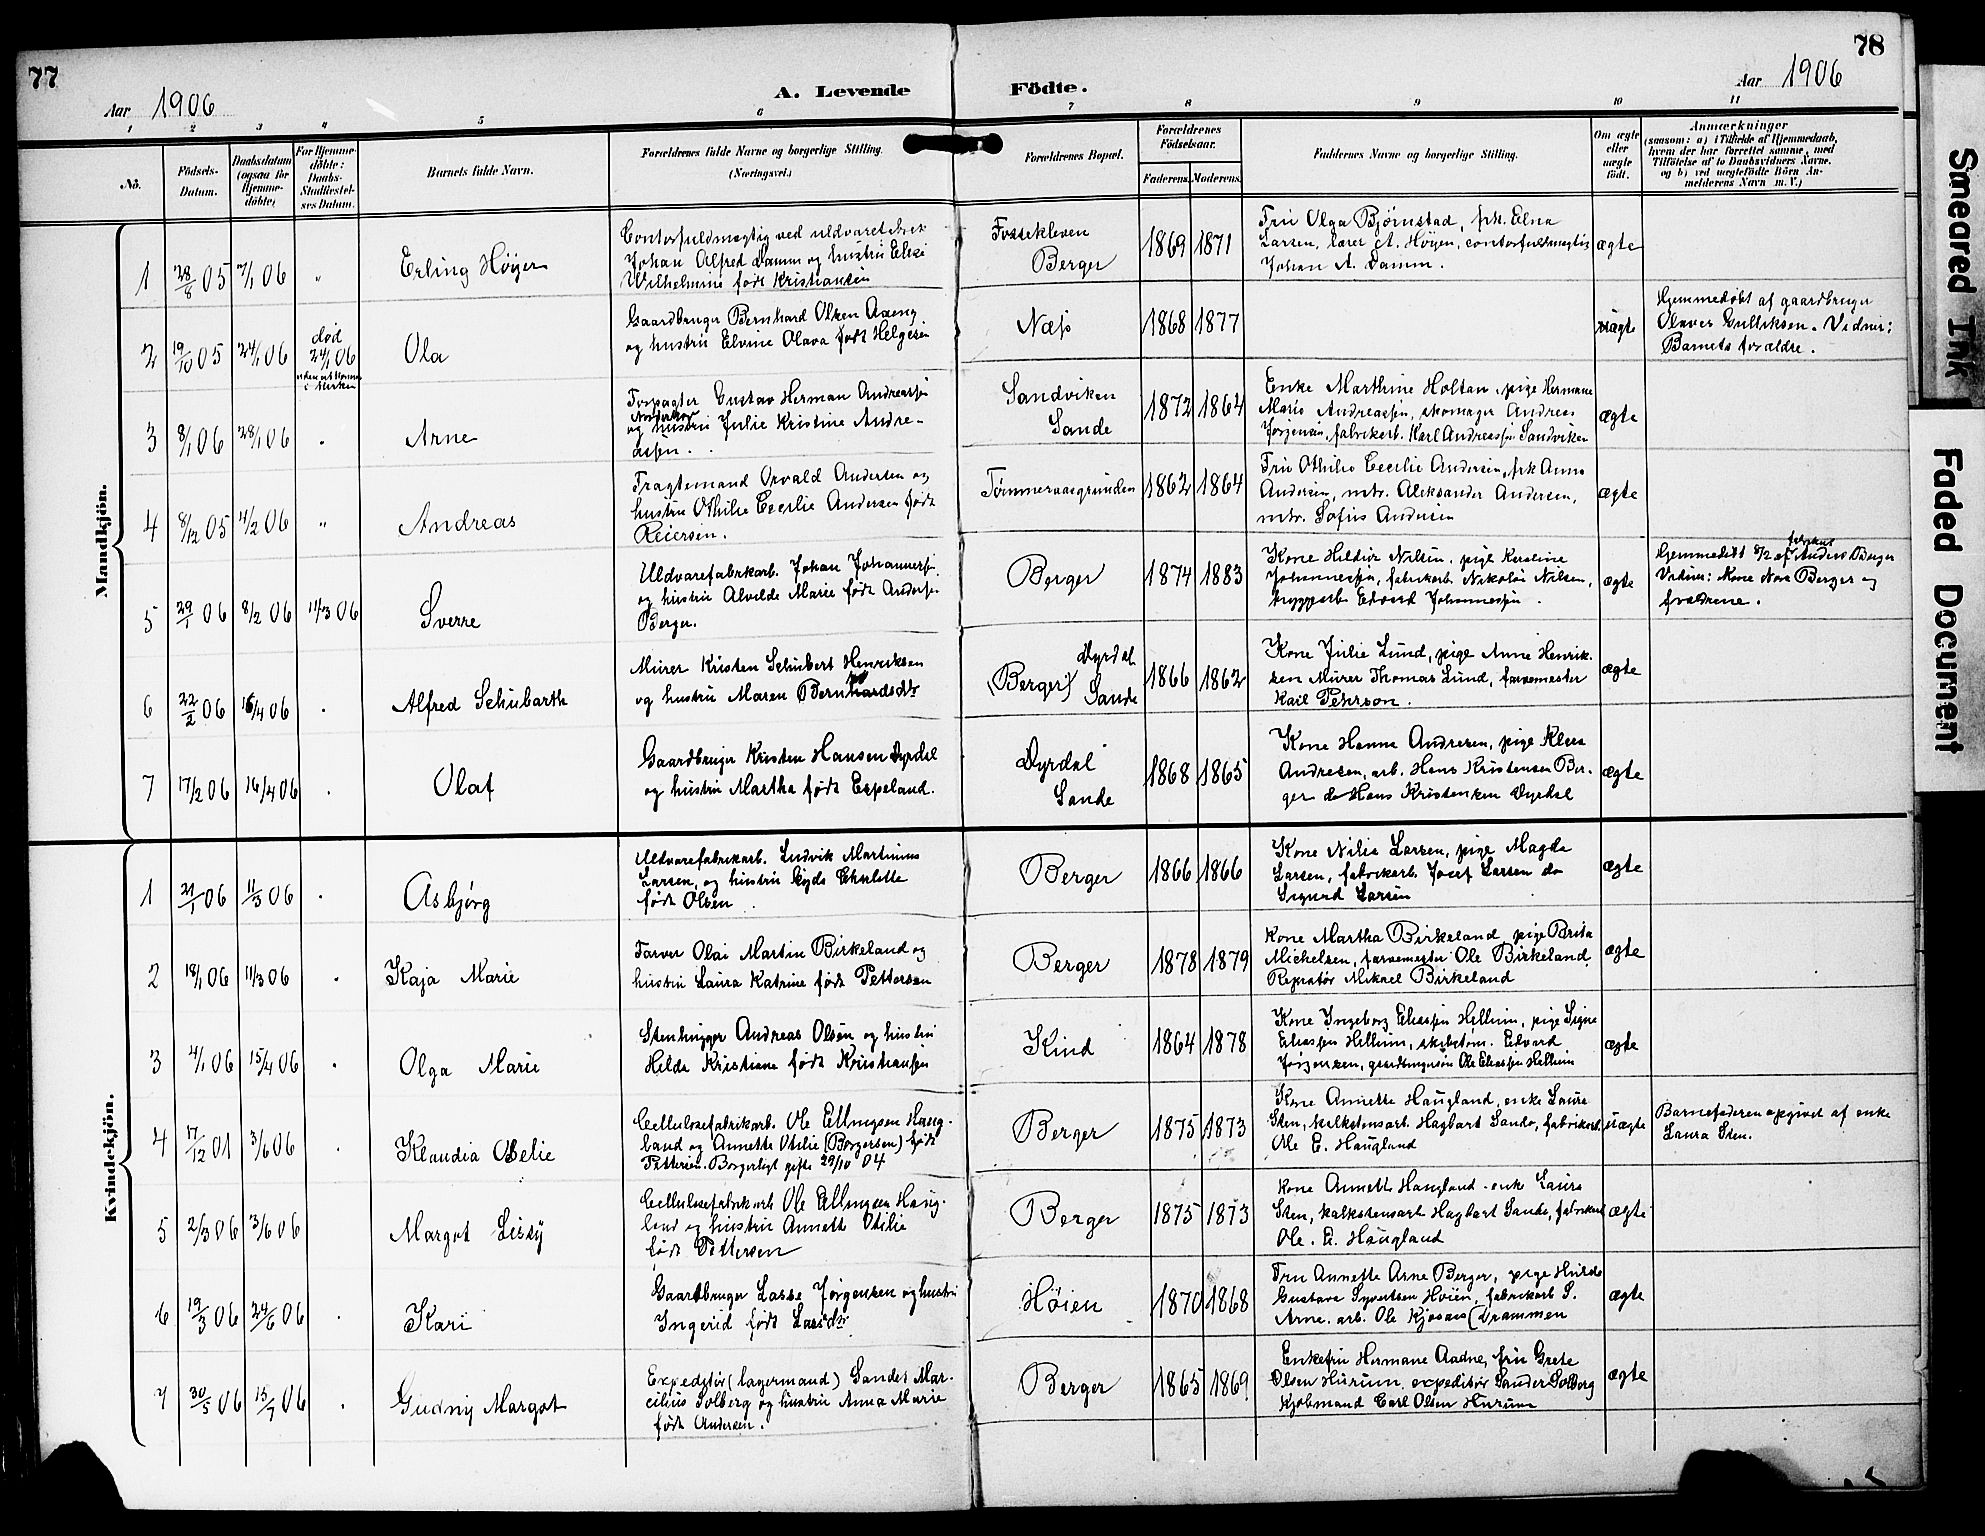 77
78
Aar 1906
A. Levende Födte.
Aar 1906
1 2 3 4 5 6 7 8 9 10 11
Nö.
Födsels-Datum.
Daabsdatum (ogsaa for Hjemme-döbte)
For Hjemme-döbte: Daabs-Stadfæstel-ses Datum.
Barnets fulde Navn.
Forældrenes fulde Navne og borgerlige Stilling. (Næringsvei.)
Forældrenes Bopæl.
Forældrenes Födselsaar.
Faderens. Moderens.
Faddernes Navne og borgerlige Stilling.
Om ægte eller uægte födt.
Anmærkninger
(saasom: a) i Tilfælde af Hjemmedaab,
hvem der har forrettet samme, med
Tilföielse af to Daabsvidners Navne.
og b) ved uægtefödte Börn An-
melderens Navn m. V.)
Mandkjön.
1 28/8 05 7/1 06 " Erling Höyer
Contorfuldmægtig ved uldvarefabrik
Johan Alfred Damm og hustru Elise
Wilhelmine född Kristiansen
Fossekleven
Berger
1869 1871
Fru Olga Bjørnstad, frk. Elna
Larsen, lærer A. Höyen, contorfuldmægtig
Johan A. Damm.
ægte
2 19/10 05 24/1 06 död 24/1 06 Ola
Gaardbruger Bernhard Olsen Aaeng
og hustru Elvine Olava född Helgesen
Næs
1868 1877
ægte
Hjemmedöbt af gaardbruger
Olaves Gulliksen. Vidner:
Barnets forældre.
3 8/1 06 28/1 06 . Arne
Forpagter Gustav Herman Andreassen
og hustru Julie Kristine Andre-
assen.
Sandviken
Sande
1872 1864
Enke Marthine Holtan, pige Hermane
Marie Andreassen, skomager Andreas
Jörgensen, fabrikarb. Karl Andreassen Sandviken
ægte
4 8/12 05 4/2 06 " Andreas
Fragtemand Osvald Andersen og
hustru Othilie Cecilie Andersen född
Reiersen.
Tömmeraasgrunden
1862 1864
Fru Othilie Cecilie Andersen, frk Anna
Andersen, mtr. Aleksander Andersen,
mtr. Sofus Andersen
ægte
5 29/1 06 8/2 06 11/3 06 Sverre
Uldvarefabrikarb. Johan Johannessen
og hustru Alvilde Marie född Andersen
Berger.
Berger
1874 1883
Kone Hildur Nilsen, pige Karoline
Johannessen, fabrikarb. Nikolai Nilsen,
Edvard Johannessen.
ægte
Hjemmedöbt 8/2 af Anders Berger
Vidner: Kone Nora Berger og
forældrene.
6 22/2 06 16/4 06 . Alfred Schubarth
Murer Kristen Schubert Henriksen
og hustru Maren Bernhardsdtr
(Berger) Dyrdal
Sande
1866 1862
Kone Julie Lund, pige Anne Henrik-
sen Murer Thomas Lund, farvemester
Karl Pehrson.
ægte
7 17/2 06 16/4 06 . Olaf
Gaardbruger Kristen Hansen Dyrdal
og hustru Martha född Espeland.
Dyrdal
Sande
1868 1865
Kone Hanna Andresen, pige Klara
Andresen, arb. Hans Kristensen Ber-
ger do Hans Kristensen Dyrdal
ægte
Kvindekjön.
1 21/1 06 11/3 06 . Asbjörg
Uldvarefabrikarb. Ludvik Martinius
Larsen, og hustru Charlotte
född Olsen
Berger
1866 1866
Kone Nilia Larsen, pige Magda
Larsen, fabrikarb. Josef Larsen do
Sigurd Larsen
ægte
2 18/1 06 11/3 06 . Kaja Marie
Farver Olai Martin Birkeland og
hustru Laura Katrine född Pettersen
Berger
1878 1879
Kone Martha Birkeland, pige Brita
Michelsen, farvemester Ole Birkeland,
Reparatör Mikael Birkeland
ægte
3 4/1 06 15/4 06 . Olga Marie
Stenhugger Andreas Olsen og hustru
Hilda Kristiane född Kristiansen
Kind
1864 1878
Kone Ingeborg Eliassen Hellum, pige Signe
Eliassen Hellum, skibstöm. Edvard
Jörgensen, gaardbrugersön Ole Eliassen Hellum
ægte
4 17/12 01 3/6 06 . Klaudia Ovelie
Cellulosefabrikarb. Ole Ellingsen Haug-
land og Annette Otilie (Borgersen) född
Pettersen. Borgerligt gifte 29/10 04
Berger
1875 1873
Kone Annette Haugland, enke Laura
Sten, kalkstensarb. Hagbart Sande, fabrikarb.
Ole E. Haugland
uægte
Barnefaderen opgivet af enke
Laura Sten.
5 2/3 06 3/6 06 Margot Lissy
Cellulosefabrikarb Ole Ellingsen Haug-
land og hustru Annette Otilie
född Pettersen
Berger
1875 1873
Kone Annette Haugland enke Laura
Sten, kalkstensarb Hagbart Sande, fabrikarb
Ole. E. Haugland
ægte
6 19/3 06 24/6 06 . Kari
Gaardbruger Lasse Jörgensen og hustru
Ingerid född Larsdtr
Höien
1870 1868
Fru Annette Arne Berger, pige Hulda
Gustava Syvertsen Höien, fabrikarb S.
Arne. arb. Ole Kjosaas (Drammen
ægte
7 30/5 06 15/7 06 . Gudny Margot
Expeditör (lagermand) Sander Mar-
cilius Solberg og hustru Anna Marie
född Andersen.
Berger
1865 1869
Enkefru Hermane Aadne, fru Grete
Olsen Hurum, expeditör Sander Solberg
Kjöbmand Carl Olsen Hurum
ægte
Smeared Ink
Faded Document